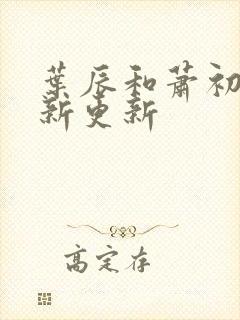 葉辰和蕭初
新更新
高定存